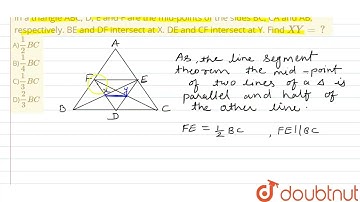 In a triangle ABC, D, E and F are the mid-points of the sides BC, CA and AB,
respectively. BE and DF intersect at X. DE and CF intersect at Y. Find XY = ?
A) 1/2 BC
B) 1/4 BC
C) 1/3 BC
D) 2/3 BC
A
F
E
x
y
B
D
C
As, the line segment
theorem the mid-point
of two lines of a Δ is
parallel and half of
the other line.
FE = 1/2 BC , FE || BC
doubtnut